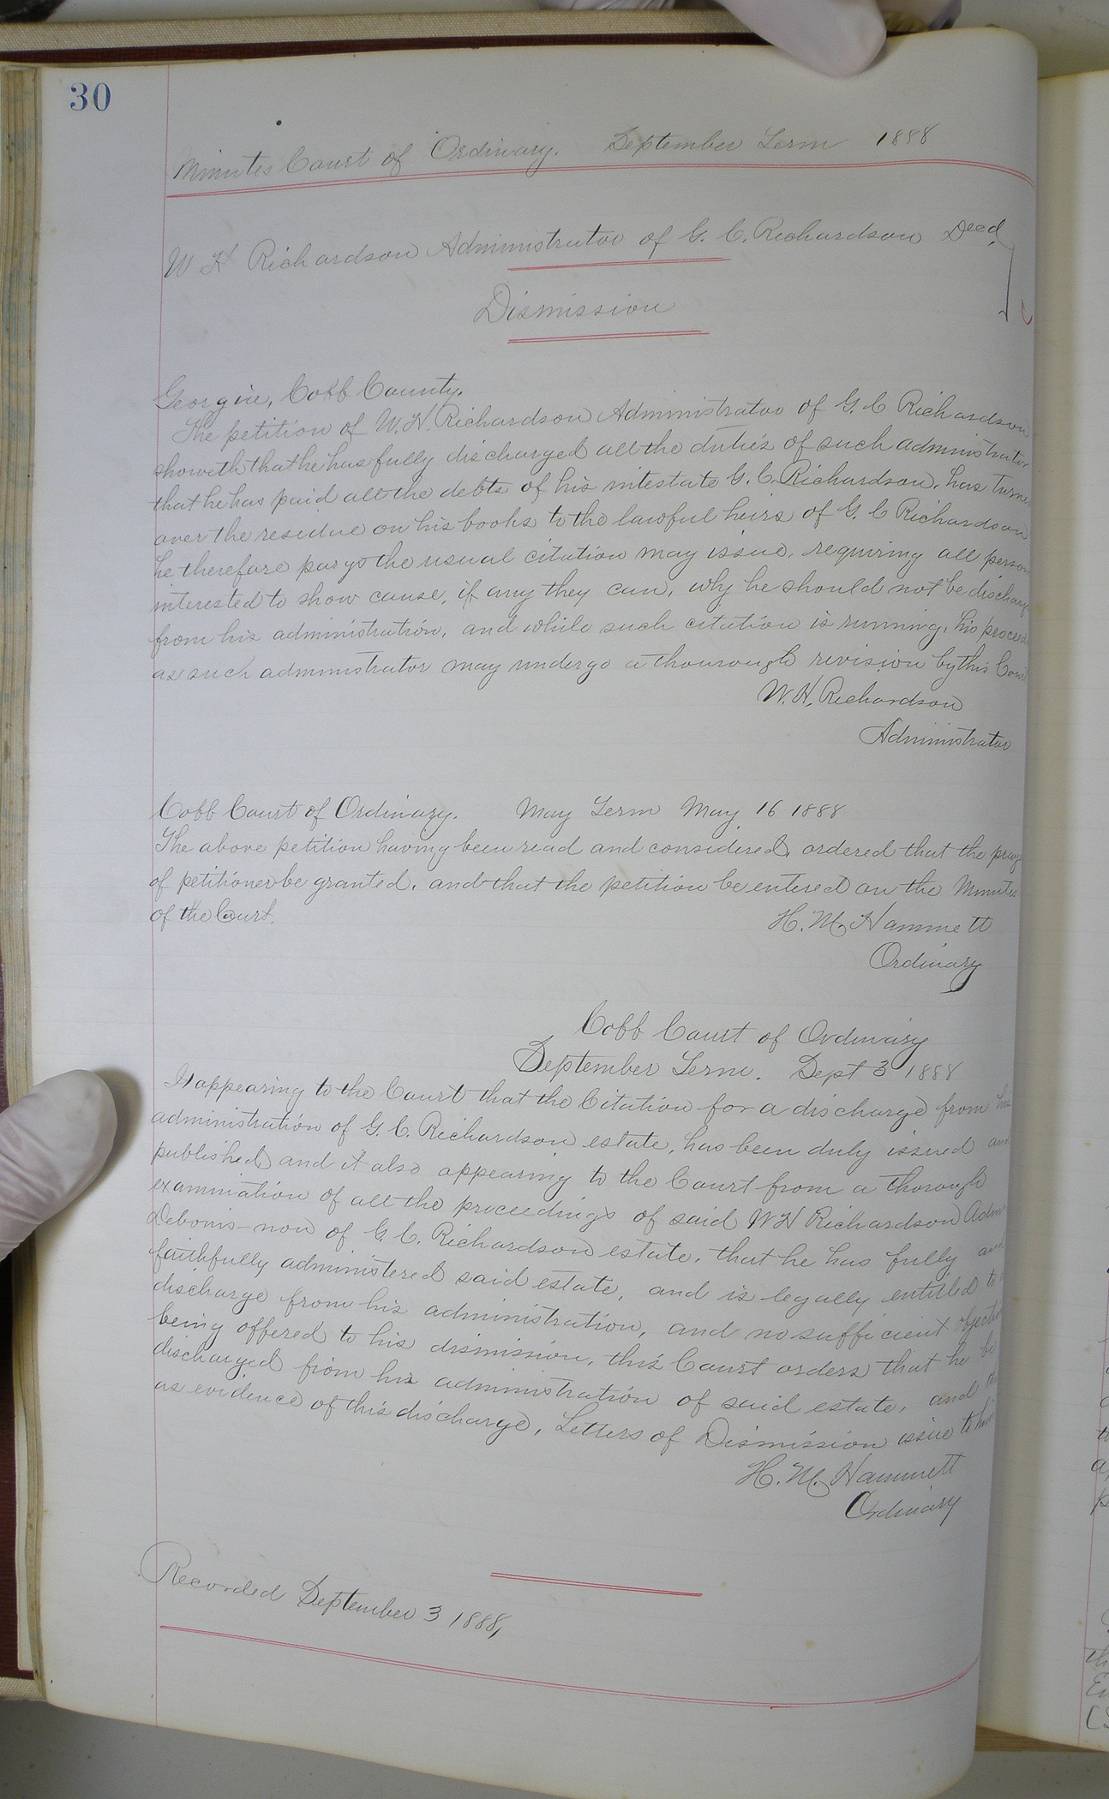 30
Minutes Court of Ordinary. September Term 1888
W H Richardson Administrator of G. C. Richardson Decd.
Dismission
Georgia, Cobb County.
The petition of W. H. Richardson Administrator of G. C Richardson
showeth that he has fully discharged all the duties of such administrator
that he has paid all the debts of his intestate G. C. Richardson, has turne
over the residue on his books to the lawful heirs of G. C Richardson
he therefore parys the usual citation may issue, requiring all person
interested to show cause, if any they can, why he should not be discharg
from his administration, and while such citation is running, his proceed
as such administrator may undergo a thourough revision by this Cour
W. H. Richardson
Administrator
Cobb Court of Ordinary. May Term May 16 1888
The above petition having been read and considered, ordered that the pray
of petitioner be granted, and that the petition be entered on the Minutes
of the Court.
H. M. Hammett
Ordinary
Cobb Court of Ordinary
September Term. Sept 3 1888
It appearing to the Court that the Citation for a discharge from his
administration of G. C. Richardson estate, has been duly issued and
published, and it also appearing to the Court from a thorough
examination of all the proceedings of said W H Richardson Adm
Debonis-non of G. C. Richardson estate, that he has fully and
faithfully administered said estate, and is legally entitled to
discharge from his administration, and no sufficient objectio
being offered to his dismission, this Court orders that he be
discharged from his administration of said estate, and
as evidence of this discharge, Letters of Dismission issue to him
H. M. Hammett
Ordinary
Recorded September 3 1888,